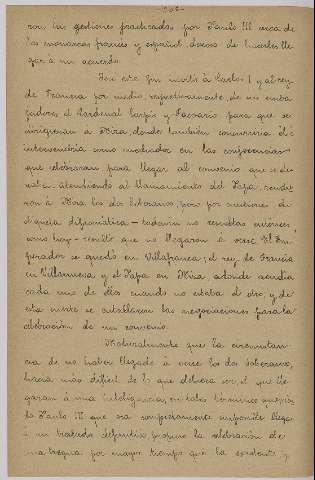 ron las gestiones practicadas por Paulo III cerca de
los monarcas francés y español, deseoso de hacerles lle-
gar a un acuerdo.
Con ese fin invitó a Carlos I y al rey
de Francia por medio, respectivamente, de sus emba-
jadores, el Cardenal Carpio y para que se
dirigieran a Niza, donde también concurriría él e
intervendría como mediador en las conferencias
que celebraran para llegar al convenio que se de-
seaba. Atendiendo al llamamiento del Papa, acudie-
ron a Niza los dos Soberanos; pero por cuestiones de
etiqueta diplomática - todavía no resueltas entonces,
como hoy - resultó que no llegaron a verse. El Em-
perador se quedó en Villafranca; el rey de Francia
en Villanueva y el Papa en Niza adonde acudía
cada uno de ellos cuando no estaba el otro, y de
esta suerte se entablaron las negociaciones para la
celebración de un convenio.
Naturalmente que la circunstan-
cia de no haber llegado a verse los dos Soberanos,
hacía más difícil de lo que debiera ser, el que lle-
garan a una inteligencia, en tales términos que vis-
to Paulo III que era completamente imposible llegar
a un tratado definitivo, propuso la celebración de
una tregua por mayor tiempo que la acordada y